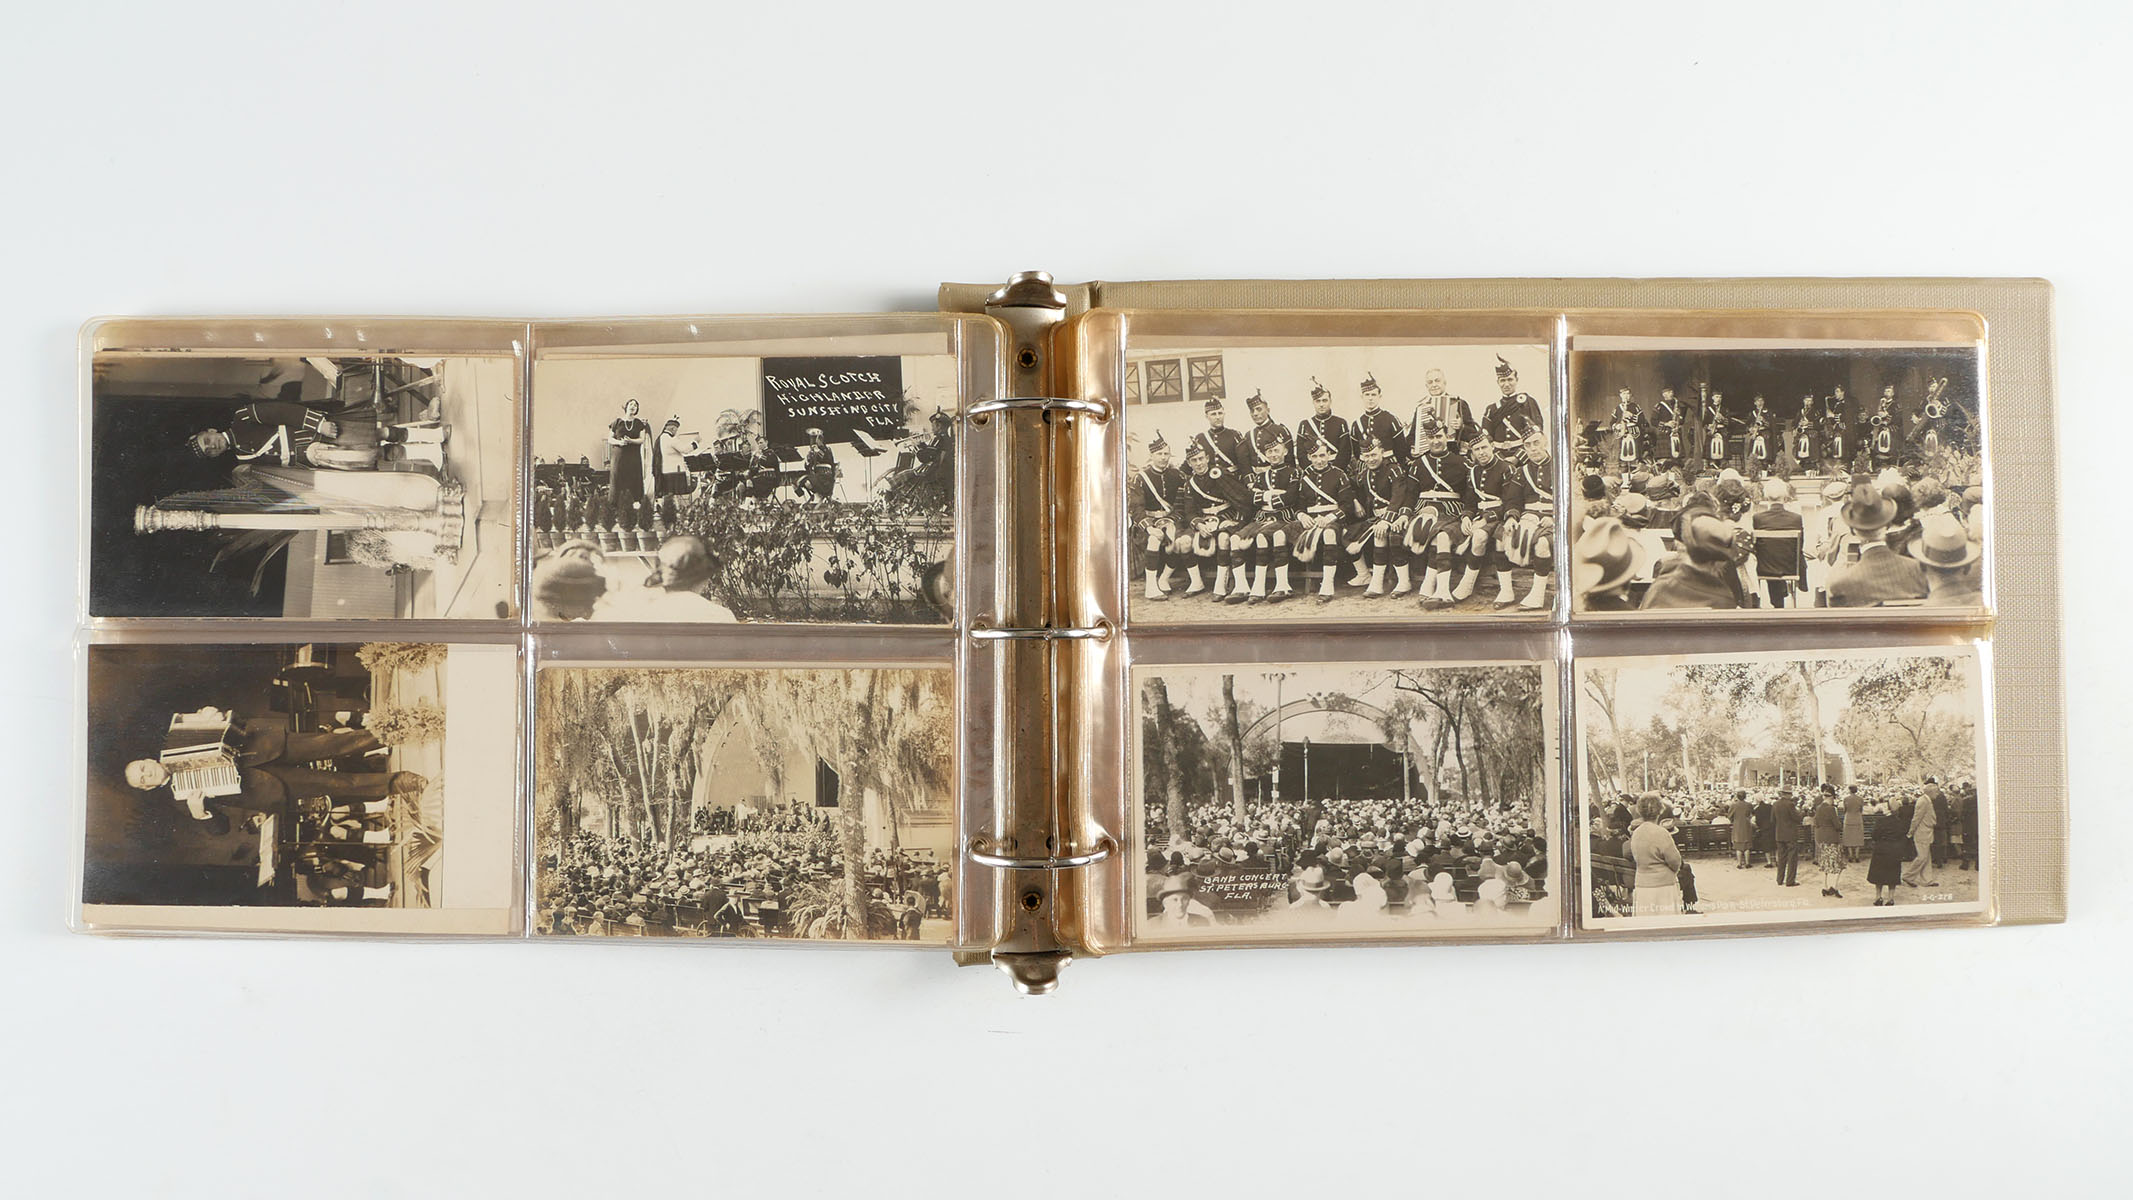 ROYAL SCOTCH
HIGHLANDER
SUNSHINE CITY
FLA.
BAND CONCERT
ST. PETERSBURG
FLA.
A Mid-Winter Crowd in Williams Park-St. Petersburg, Fla.